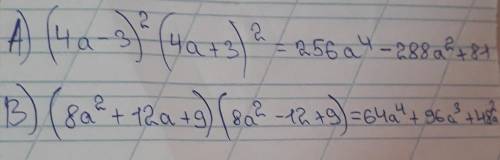 A) (4a-3)² (4a+3)² = 256a⁴ - 288a² + 81
B) (8a² + 12a + 9) (8a² - 12 + 9) = 64a⁴ + 96a³ +